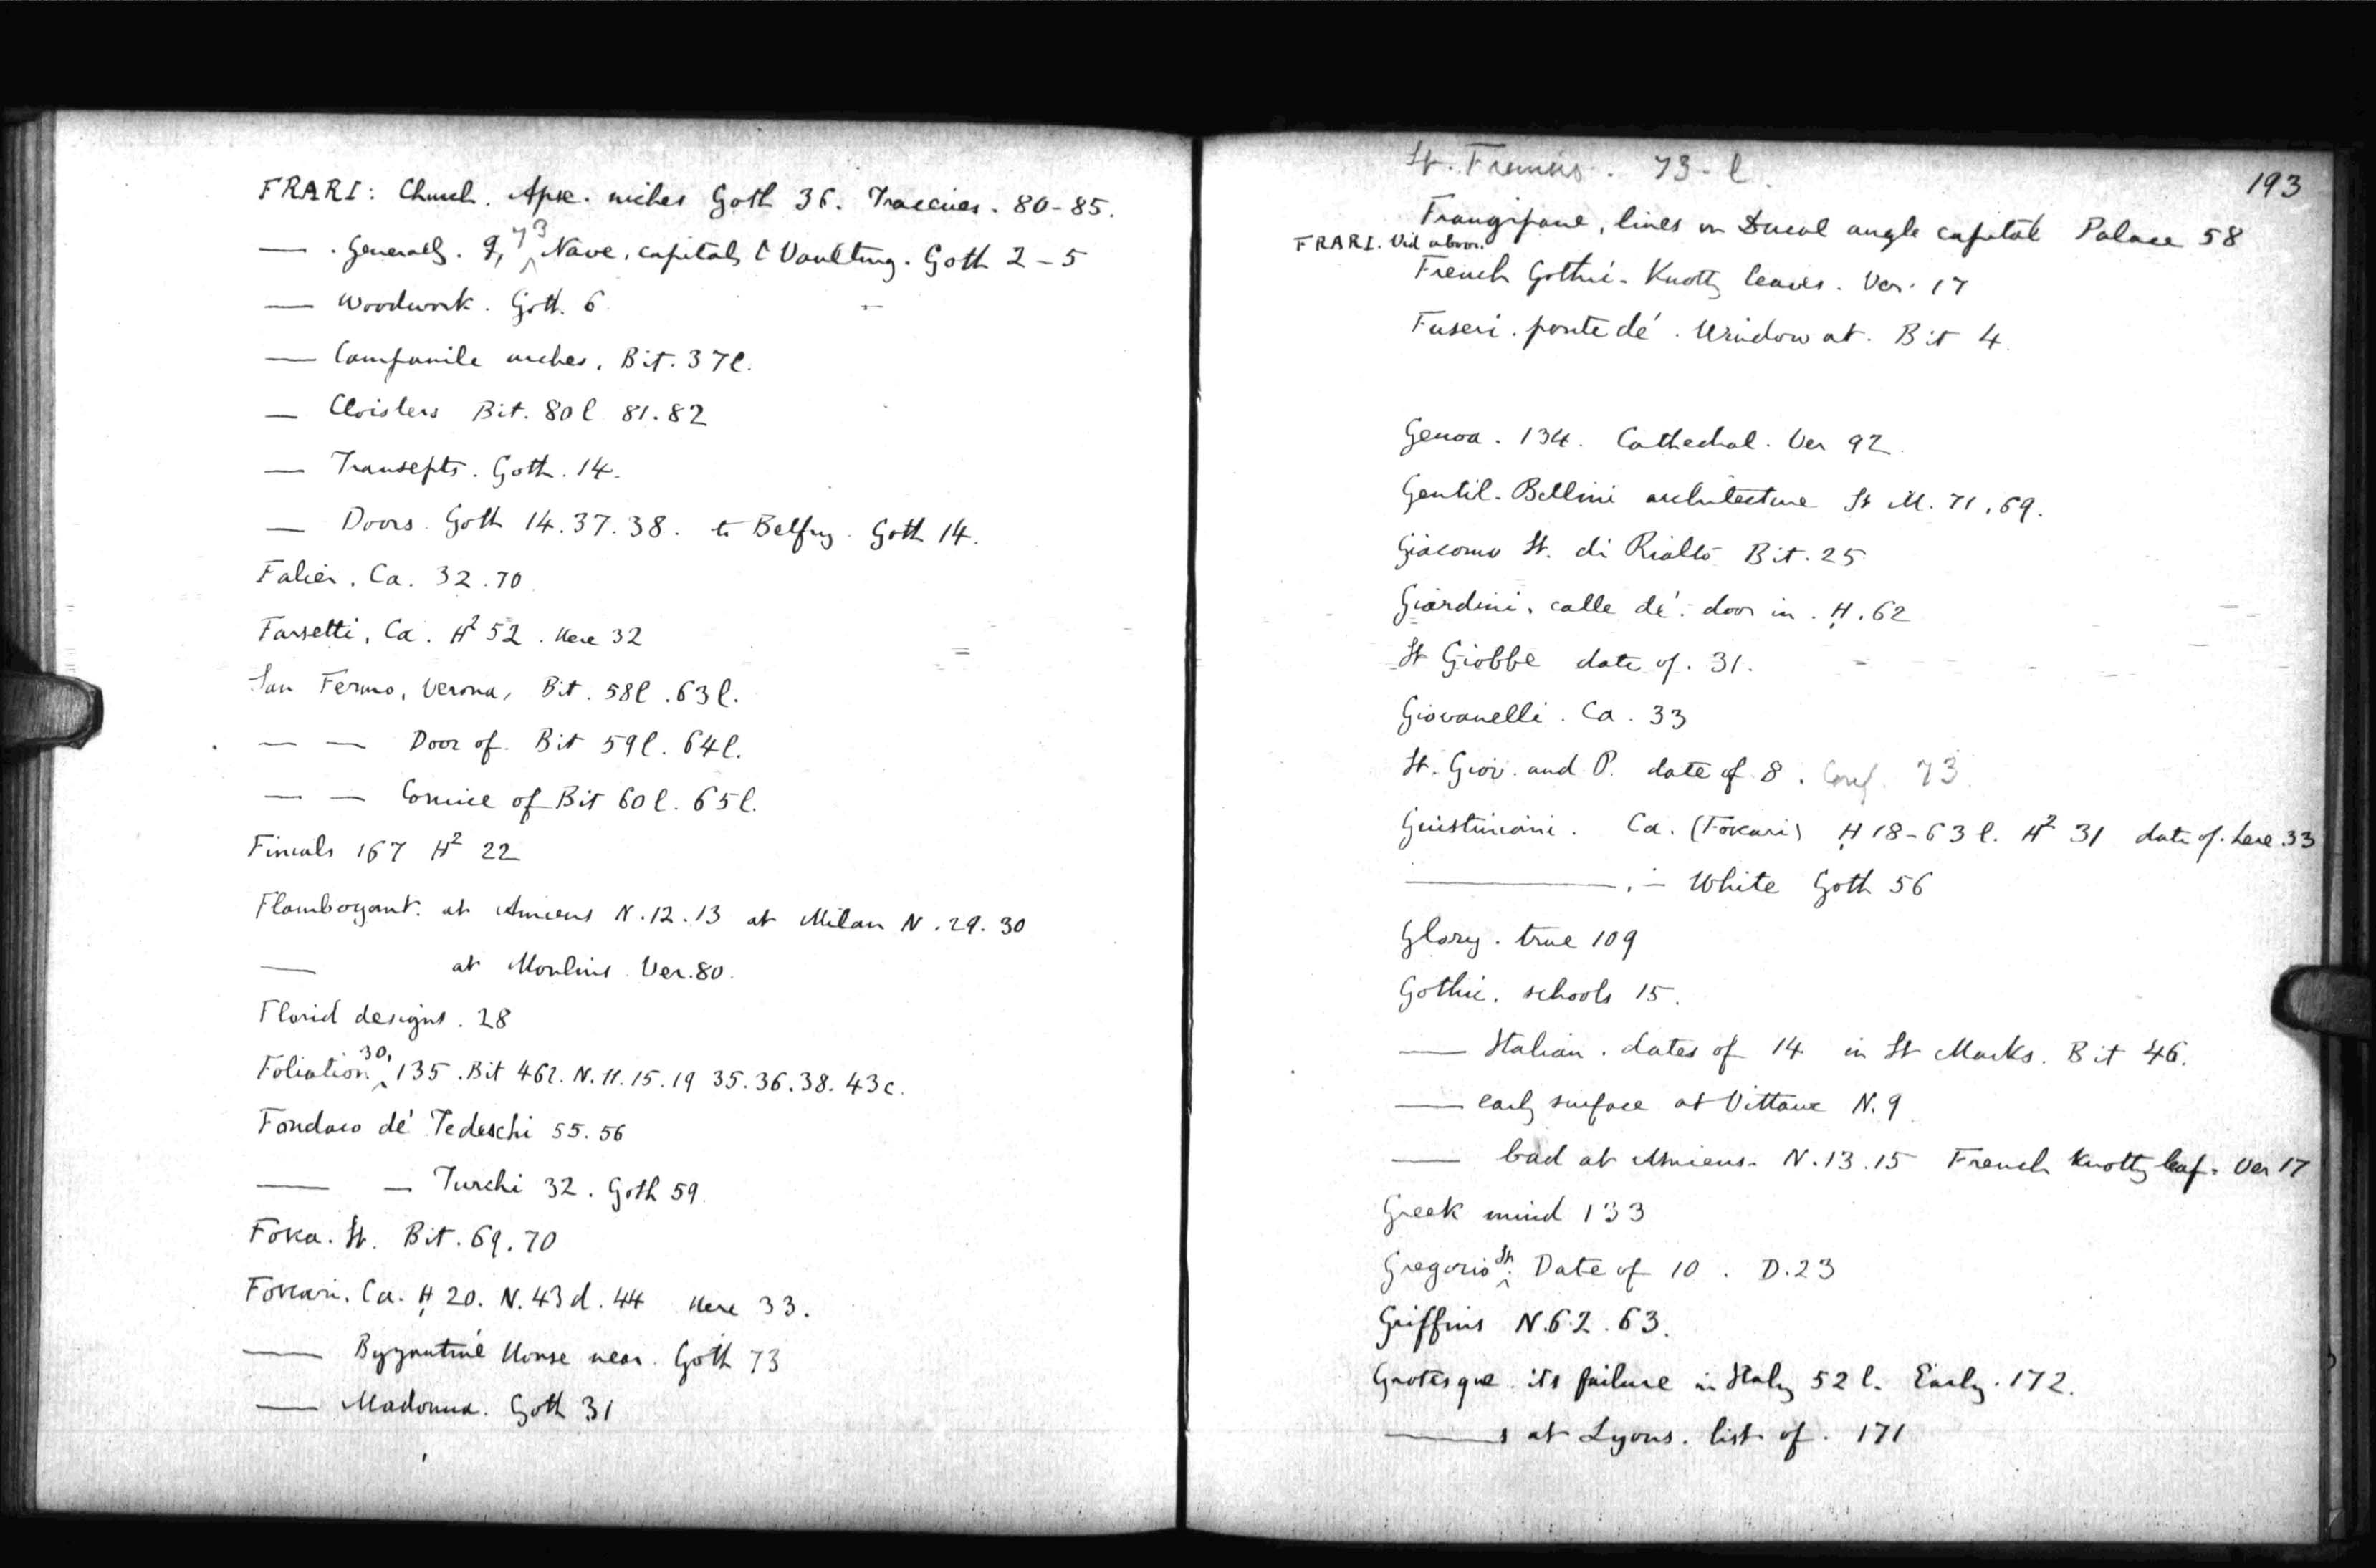 FRARI: Church. Apse. niches Goth 36. Traceries. 80-85.
— . Generally. 9, 73 Nave, capitals & Vaulting. Goth 2-5
— Woodwork. Goth. 6
— Campanile arches. Bit. 37l.
— Cloisters Bit. 80l 81.82
— Transepts. Goth. 14.
— Doors. Goth 14.37.38. to Belfry. Goth 14.
Falier. Ca. 32.70
Farsetti, Ca. H2 52. Here 32
San Fermo, Verona, Bit. 58l. 63l.
— — Door of. Bit 59l. 64l.
— — Cornice of Bit 60l. 65l.
Finials 167 H2 22
Flamboyant. at Amiens N.12.13 at Milan N.29.30
— at Moulins Ver.80.
Florid designs. 28
Foliation 30, 135. Bit 46l. N.11.15.19 35.36.38.43c.
Fondaco de' Tedeschi 55.56
— — Turchi 32. Goth 59
Foxa. St. Bit. 69.70
Foscari. Ca. H 20. N.43d.44 Here 33.
— Byzantine House near. Goth 73
— Madonna. Goth 31
193
St. Francis. 73-l.
Frangipane, lines on Ducal angle capital Palace 58
FRARI. Vid above.
French Gothic. Knotty leaves. Ver. 17
Fuseri. ponte de'. Window at. Bit 4
Genoa. 134. Cathedral. Ver 92
Gentil. Bellini architecture St M. 71,69.
Giacomo St. di Rialto Bit. 25
Giardini. calle de'. door in. H.62
St Giobbe date of. 31.
Giovanelli. Ca. 33
St. Giov. and P. date of 8. Conf. 73
Giustiniani. Ca. (Foscari) H 18-63l. H2 31 date of. here.33
— . — White Goth 56
Glory. true 109
Gothic. schools 15.
— Italian. dates of 14 in St Marks. Bit 46.
— early surface at Vittaux N.9
— bad at Amiens. N.13.15 French knotty leaf. Ver 17
Greek mind 133
Gregorio St. Date of 10. D.23
Griffins N.62.63.
Grotesque. its failure in Italy 52l. Early. 172.
—s at Lyons. list of. 171